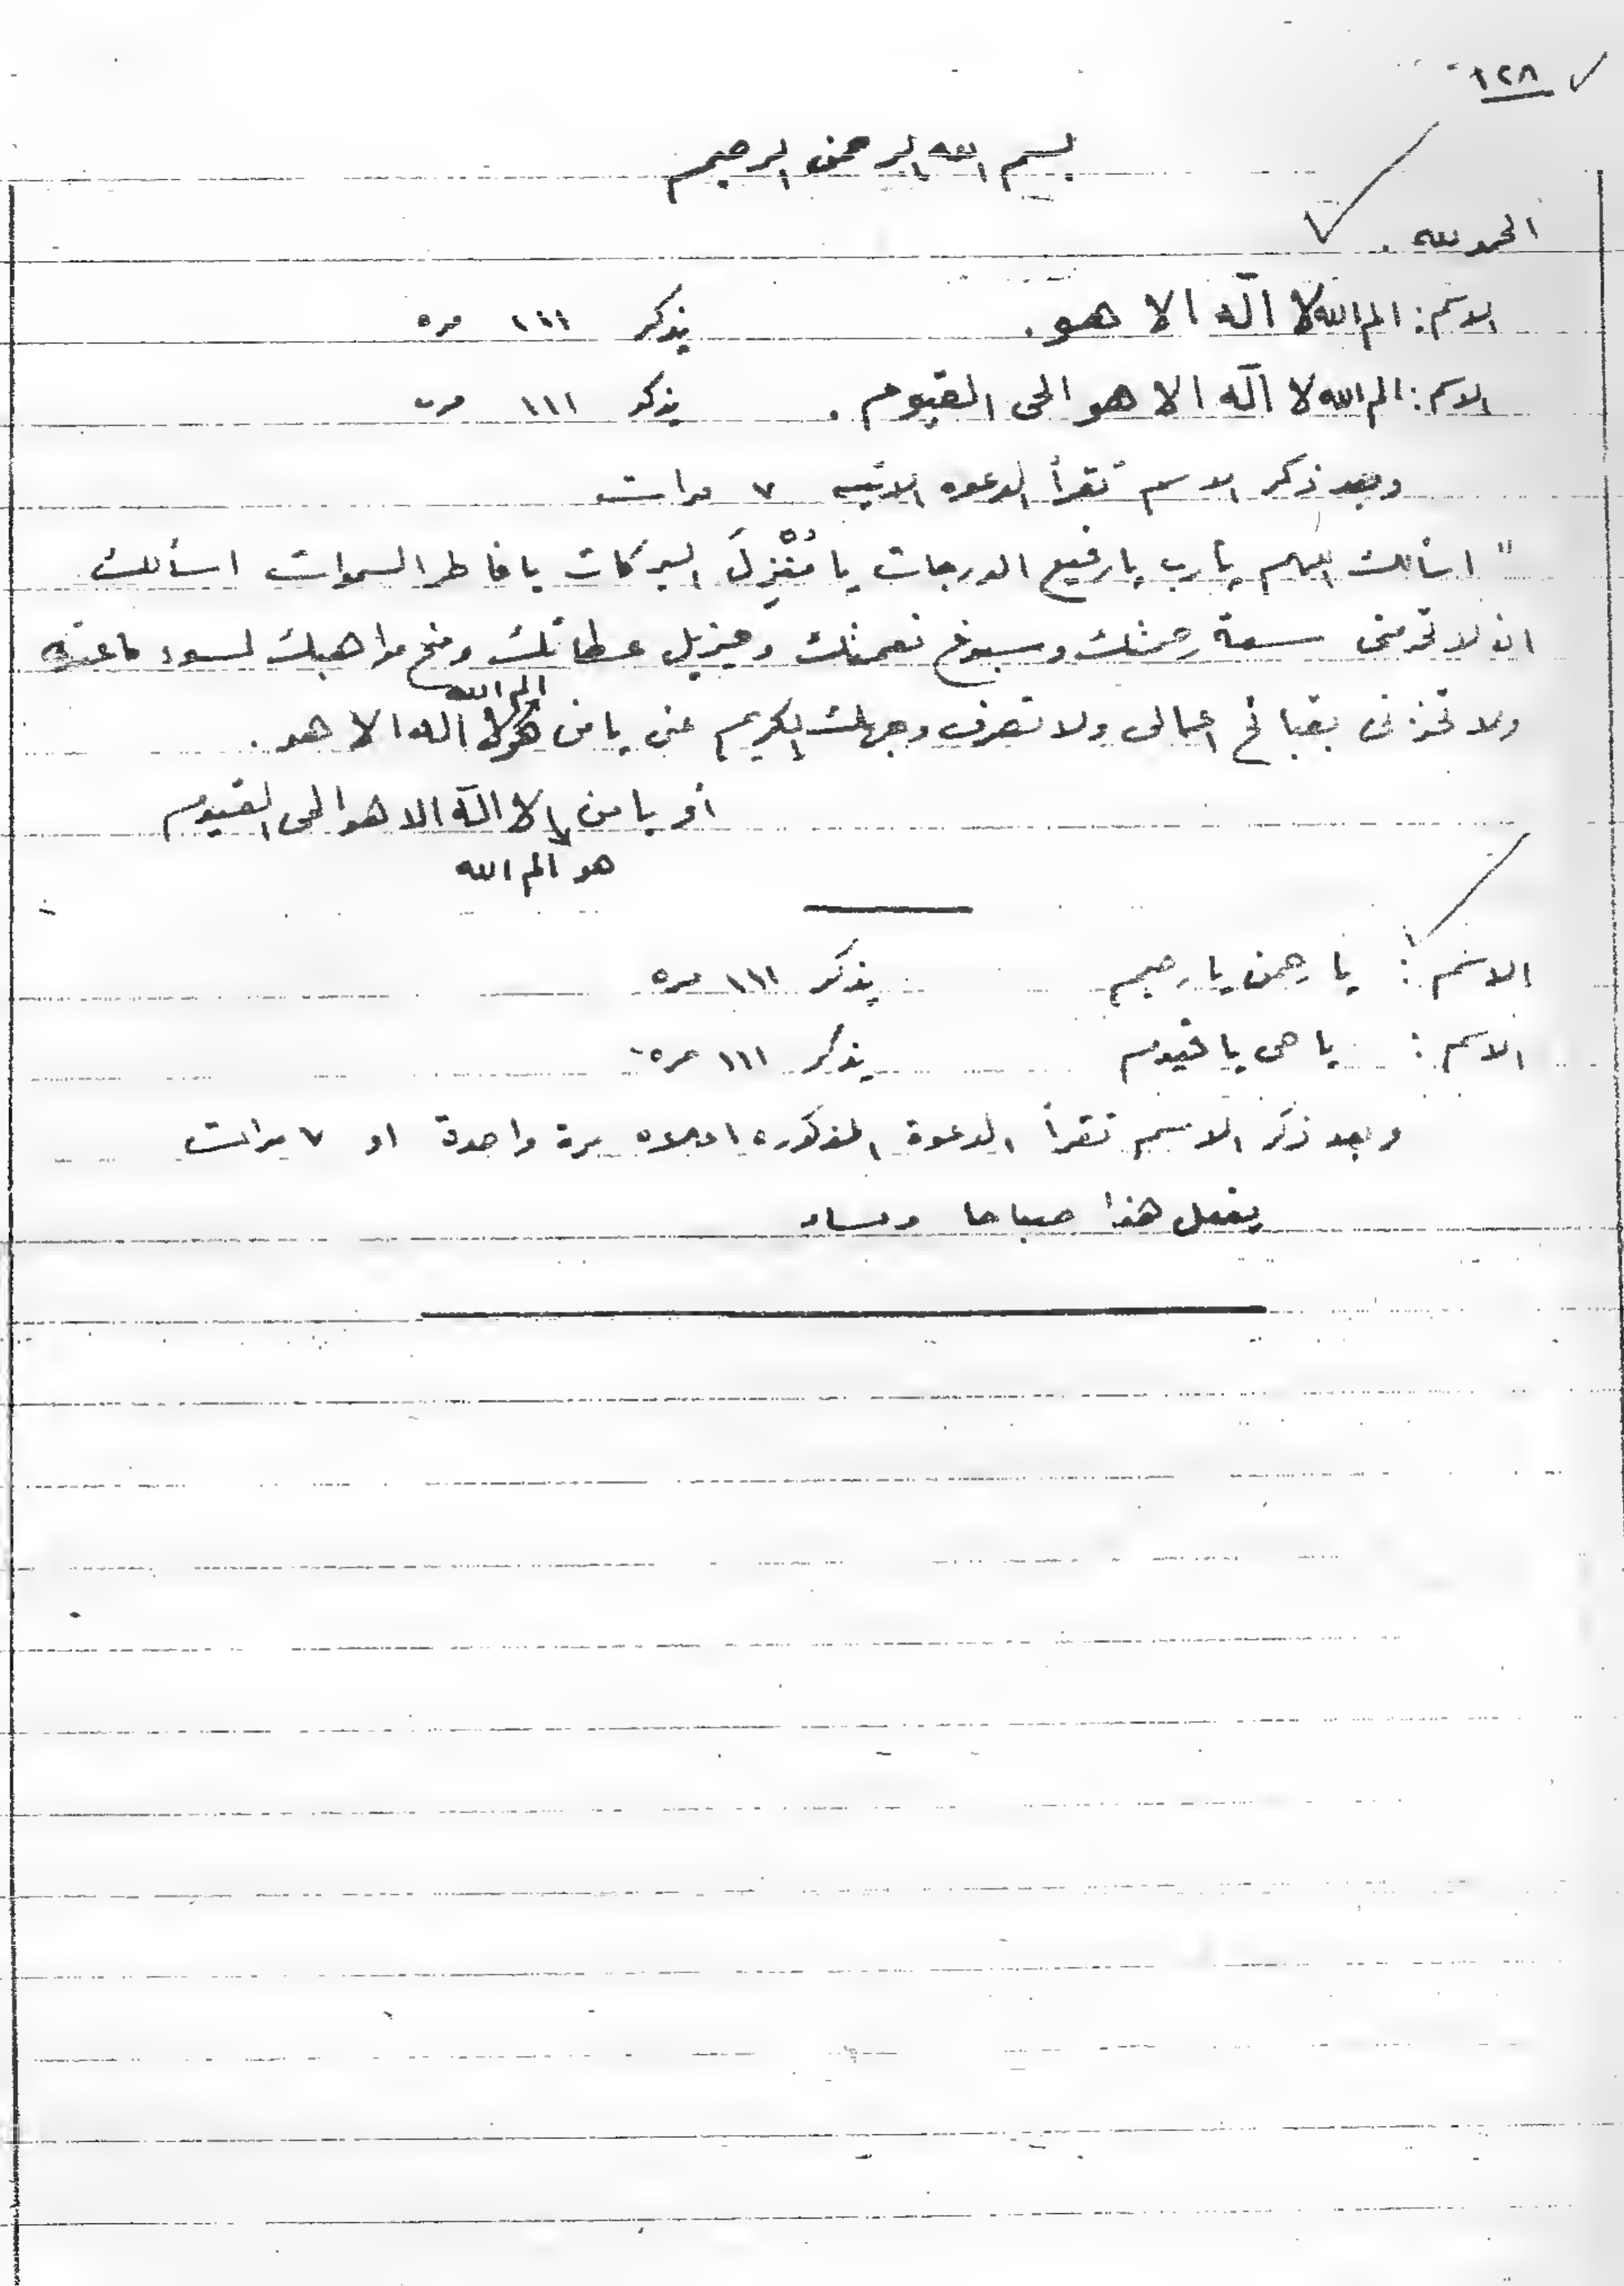 ١٢٨
بسم الله الرحمن الرحيم
الحمد لله .
الاسم : الم الله لا اله الا هو . يذكر ١١١ مره
الاسم : الم الله لا اله الا هو الحى القيوم . يذكر ١١١ مره
وبعد ذكر الاسم تقرأ الدعوه الاتيه ٧ مرات
" اسألك اللهم يارب يا رفيع الدرجات يا مُنْزِلَ البركات يا فاطر السموات اسألك
ان لا تحرمنى سعة رحمتك وسبوغ نعمتك وجزيل عطائك ومنح مواهبك لسوء ما عندى
الم الله
ولا تخزنى بقبائح اعمالى ولا تصرف وجهك الكريم عنى يا من هو لا اله الا هو .
أو يا من لا اله الا هو الحى القيوم
هو الم الله
الاسم : يا رحمن يا رحيم يذكر ١١١ مره
الاسم : يا حى يا قيوم يذكر ١١١ مره
وبعد ذكر الاسم تقرأ الدعوة المذكوره اعلاه مرة واحدة او ٧ مرات
يفعل هذا صباحا ومساء